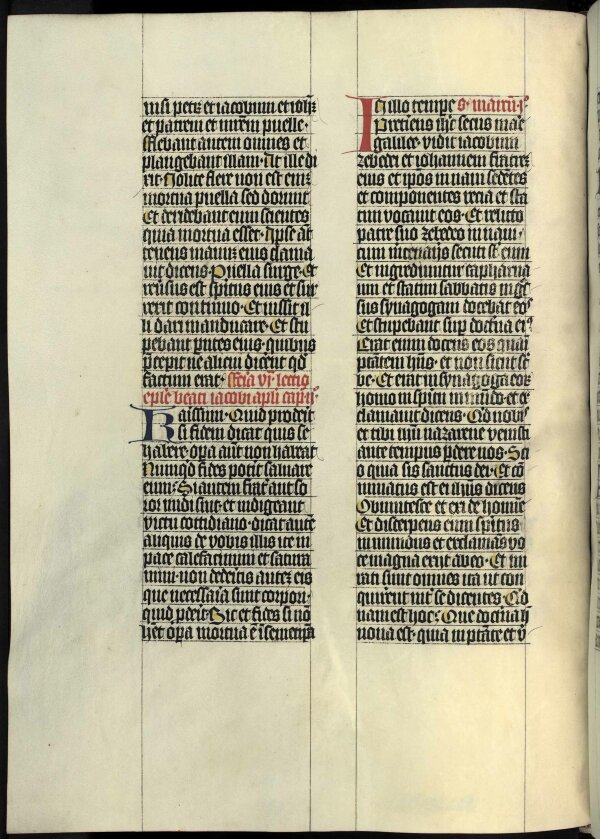 nisi petrū et iacobum et ioħēm
et patrem et mrem puelle·
fflebant autem omnes et
plangebant illam· At ille di
xit· Nolite flere non est enī
mortua puella sed dormit
Et deridebant eum scientes
quia mortua esset· Ipse aūt
tenens manum eius clama
uit dicens· Puella surge· Et
reūsus est spiritus eius et sur
rexit continuo· Et iussit il
li dari manducare· Et stu
pebant parentes eius, quibus
p̄cepit ne alicui dicerent qd̄
factum erat· Feria vi lectio
epl̄e beati iacobi apl̄i cap ii
Karissimi· Quid proderit
si fidem dicat quis se
habere· opera aūt non habeat
Nunquid fides poterit saluare
eum· Si autem frater aut so
ror nudi sint· et indigeant
victu cottidiano· dicat autē
aliquis de vobis illis ite in
pace calefacimini et satura
mini· non dederitis autem eis
que necessaria sunt corpori·
quid proderit· Sic et fides si nō
habet opera mortua ē in semetipsa
In illo tempore S· marcū· i
Preteriens ihc secus mare
galilee· vidit iacobum
zebedei et iohannem fratrem
eius et ipos in naui sedētes
et componentes recia et sta
tim vocauit eos· Et relicto
patre suo zebedeo in naui·
cum mercenarijs secuti st eum
Et ingrediuntur capharna
um et statim sabbatis ingres
sus synagogam docebat eos
Et stupebant super doctrina eius
Erat enim docens eos quasi
ptātem habens· et non sicut scri
be· Et erat in synagoga eorum
homo in spiritu inmundo· et ex
clamauit dicens· Quid nobis
et tibi ihū nazarene venisti
ante tempus perdere nos· Sci
o quia sis sanctus dei· Et cō
minatus est ei ihus dicens
Obmutesce· et exi de homine
Et discerpens eum spiritus
inmundus et exclamans vo
ce magna exijt ab eo· Et mi
rati sunt omnes ita ut con
quirerent inter se dicentes· Quid
nam est hoc· Que doctrina h
noua est· quia in ptāte et